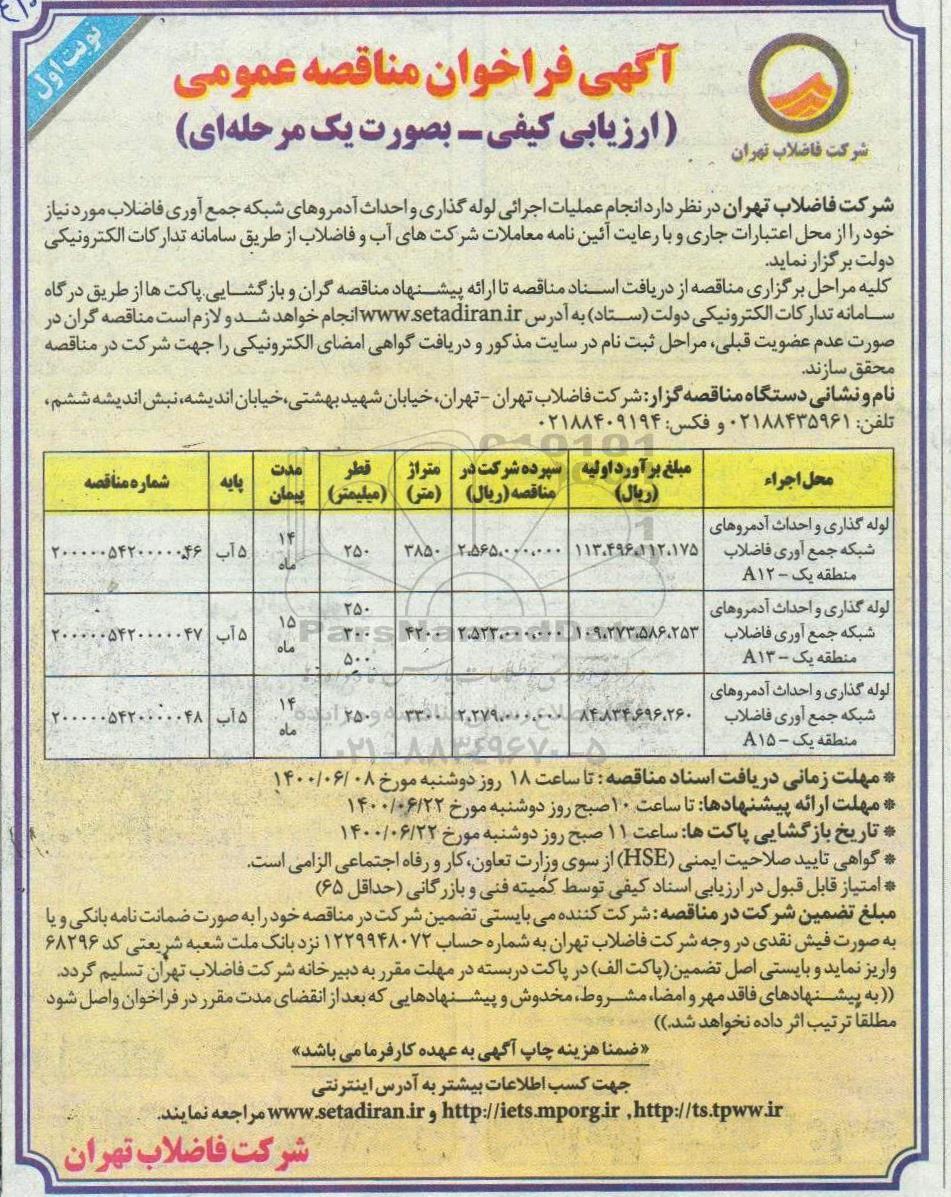 نوبت اول
آگهی فراخوان مناقصه عمومی
(ارزیابی کیفی ــ بصورت یک مرحله‌ای)
شرکت فاضلاب تهران
شرکت فاضلاب تهران در نظر دارد انجام عملیات اجرائی لوله گذاری و احداث آدمروهای شبکه جمع آوری فاضلاب مورد نیاز
خود را از محل اعتبارات جاری و با رعایت آئین نامه معاملات شرکت های آب و فاضلاب از طریق سامانه تدارکات الکترونیکی
دولت برگزار نماید.
کلیه مراحل برگزاری مناقصه از دریافت اسناد مناقصه تا ارائه پیشنهاد مناقصه گران و بازگشایی پاکت ها از طریق درگاه
سامانه تدارکات الکترونیکی دولت (ستاد) به آدرس www.setadiran.ir انجام خواهد شد و لازم است مناقصه گران در
صورت عدم عضویت قبلی، مراحل ثبت نام در سایت مذکور و دریافت گواهی امضای الکترونیکی را جهت شرکت در مناقصه
محقق سازند.
نام و نشانی دستگاه مناقصه گزار: شرکت فاضلاب تهران -تهران، خیابان شهید بهشتی، خیابان اندیشه، نبش اندیشه ششم،
تلفن: ۰۲۱۸۸۴۳۵۹۶۱ و فکس: ۰۲۱۸۸۴۰۹۱۹۴
محل اجراء | مبلغ برآورد اولیه (ریال) | سپرده شرکت در مناقصه (ریال) | متراژ (متر) | قطر (میلیمتر) | مدت پیمان | پایه | شماره مناقصه
لوله گذاری و احداث آدمروهای شبکه جمع آوری فاضلاب منطقه یک – A۱۲ | ۱۱۳،۴۹۶،۱۱۲،۱۷۵ | ۲،۵۶۵،۰۰۰،۰۰۰ | ۳۸۵۰ | ۲۵۰ | ۱۴ ماه | ۵ آب | ۲۰۰۰۰۰۵۴۲۰۰۰۰۰۴۶
لوله گذاری و احداث آدمروهای شبکه جمع آوری فاضلاب منطقه یک – A۱۳ | ۱۰۹،۲۷۳،۵۸۶،۲۵۳ | ۲،۵۲۳،۰۰۰،۰۰۰ | ۴۲۰۰ | ۲۵۰ ۳۰۰ ۵۰۰ | ۱۵ ماه | ۵ آب | ۲۰۰۰۰۰۵۴۲۰۰۰۰۰۴۷
لوله گذاری و احداث آدمروهای شبکه جمع آوری فاضلاب منطقه یک – A۱۵ | ۸۴،۸۳۴،۶۹۶،۲۶۰ | ۲،۲۷۹،۰۰۰،۰۰۰ | ۳۳۰۰ | ۲۵۰ | ۱۴ ماه | ۵ آب | ۲۰۰۰۰۰۵۴۲۰۰۰۰۰۴۸
ParsNamadData
۰۲۱-۸۸۳۴۹۶۷۰-۵
* مهلت زمانی دریافت اسناد مناقصه: تا ساعت ۱۸ روز دوشنبه مورخ ۱۴۰۰/۰۶/۰۸
* مهلت ارائه پیشنهادها: تا ساعت ۱۰ صبح روز دوشنبه مورخ ۱۴۰۰/۰۶/۲۲
* تاریخ بازگشایی پاکت ها: ساعت ۱۱ صبح روز دوشنبه مورخ ۱۴۰۰/۰۶/۲۲
* گواهی تایید صلاحیت ایمنی (HSE) از سوی وزارت تعاون، کار و رفاه اجتماعی الزامی است.
* امتیاز قابل قبول در ارزیابی اسناد کیفی توسط کمیته فنی و بازرگانی (حداقل ۶۵)
مبلغ تضمین شرکت در مناقصه: شرکت کننده می بایستی تضمین شرکت در مناقصه خود را به صورت ضمانت نامه بانکی و یا
به صورت فیش نقدی در وجه شرکت فاضلاب تهران به شماره حساب ۱۲۲۹۹۴۸۰۷۲ نزد بانک ملت شعبه شریعتی کد ۶۸۲۹۶
واریز نماید و بایستی اصل تضمین(پاکت الف) در پاکت دربسته در مهلت مقرر به دبیرخانه شرکت فاضلاب تهران تسلیم گردد.
((به پیشنهادهای فاقد مهر و امضا، مشروط، مخدوش و پیشنهادهایی که بعد از انقضای مدت مقرر در فراخوان واصل شود
مطلقا ترتیب اثر داده نخواهد شد.))
«ضمنا هزینه چاپ آگهی به عهده کارفرما می باشد»
جهت کسب اطلاعات بیشتر به آدرس اینترنتی
http://ts.tpww.ir , http://iets.mporg.ir و www.setadiran.ir مراجعه نمایند.
شرکت فاضلاب تهران